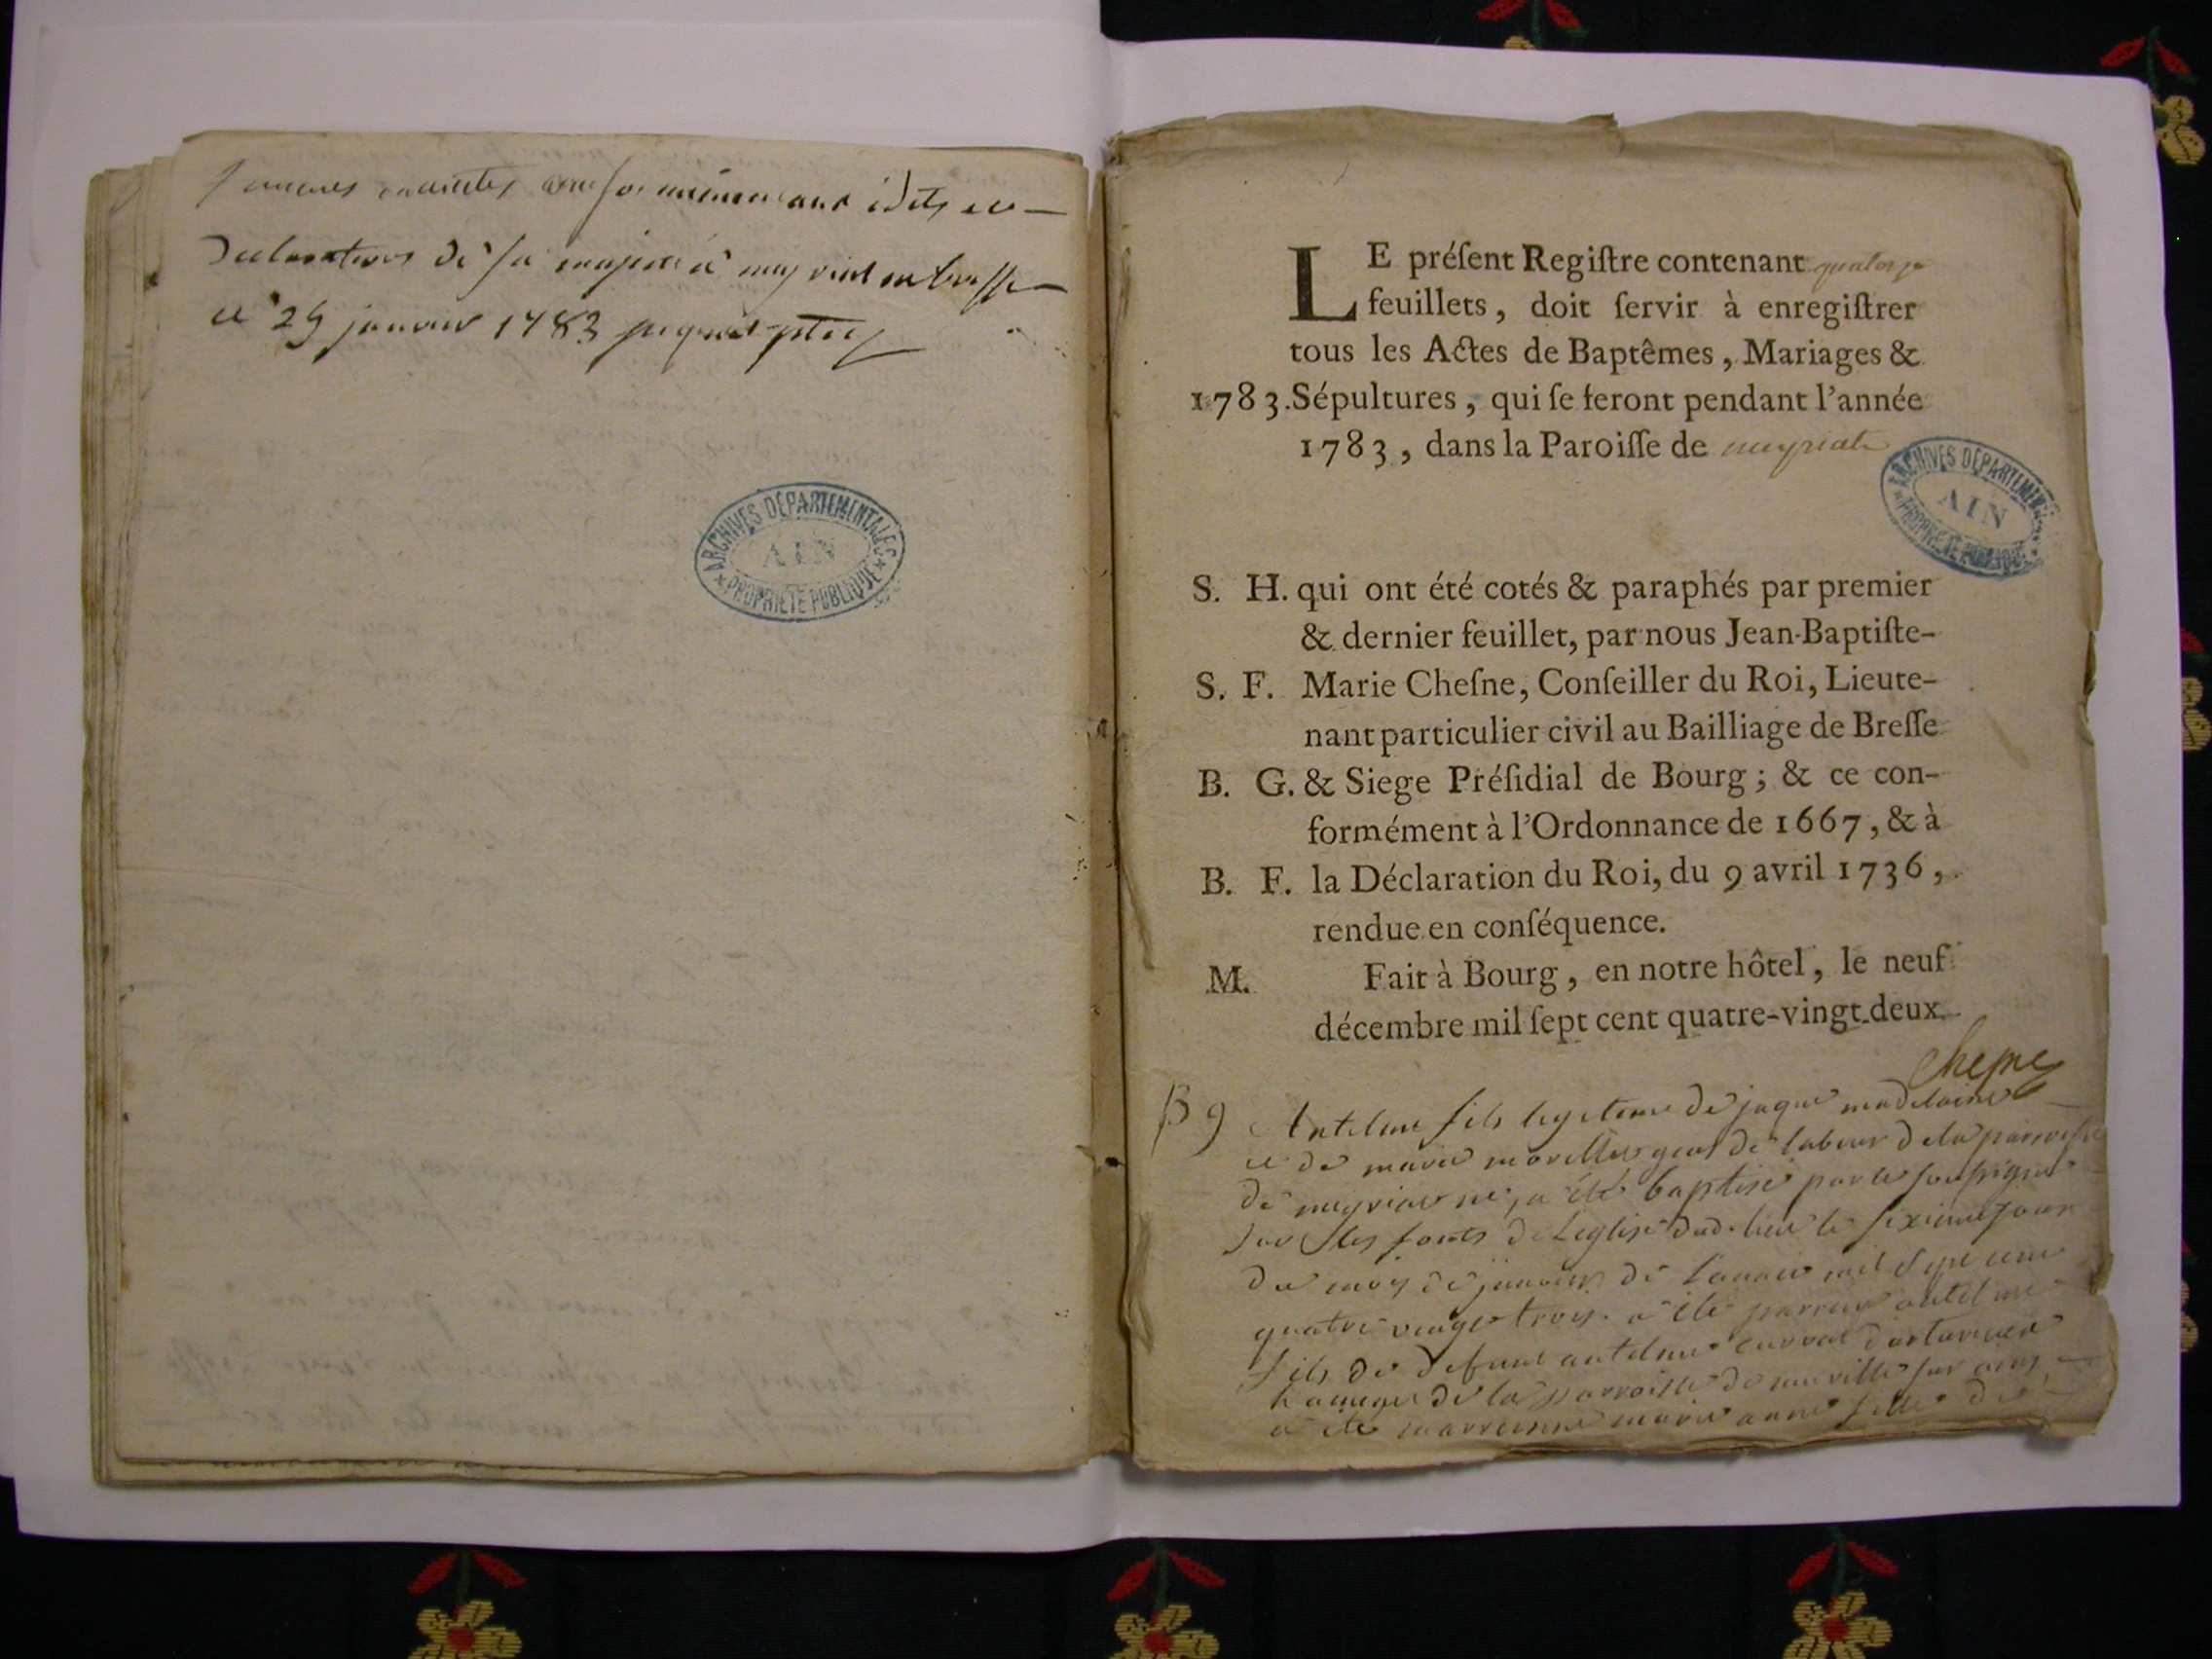 Declarations de sa majesté à meyriat en bresse
ce 29 janvier 1783
ARCHIVES DÉPARTEMENTALES
AIN
PROPRIÉTÉ PUBLIQUE
LE préſent Regiſtre contenant quatorze
feuillets, doit ſervir à enregiſtrer
tous les Actes de Baptêmes, Mariages &
1783. Sépultures, qui ſe feront pendant l'année
1783, dans la Paroiſſe de meyriat
ARCHIVES DÉPARTEMENTALES
AIN
PROPRIÉTÉ PUBLIQUE
S. H. qui ont été cotés & paraphés par premier
& dernier feuillet, par nous Jean-Baptiſte-
S. F. Marie Cheſne, Conſeiller du Roi, Lieute-
nant particulier civil au Bailliage de Breſſe
B. G. & Siege Préſidial de Bourg; & ce con-
formément à l'Ordonnance de 1667, & à
B. F. la Déclaration du Roi, du 9 avril 1736,
rendue en conſéquence.
M. Fait à Bourg, en notre hôtel, le neuf
décembre mil ſept cent quatre-vingt-deux.
Chesne
B g Antelme fils legitime de jaque madelaine
et de marie gens de labeur de la parroisse
de meyriat né, a été baptisé par le soussigné
sur les fonts de Leglise dud. lieu le sixieme jour
du moy de janvier de l'année mil sept cent
quatre vingt trois. a été parrain antelme
fils de defunt antelme
de la parroisse de neuville sur ains,
a été marrenne marie anne fille de